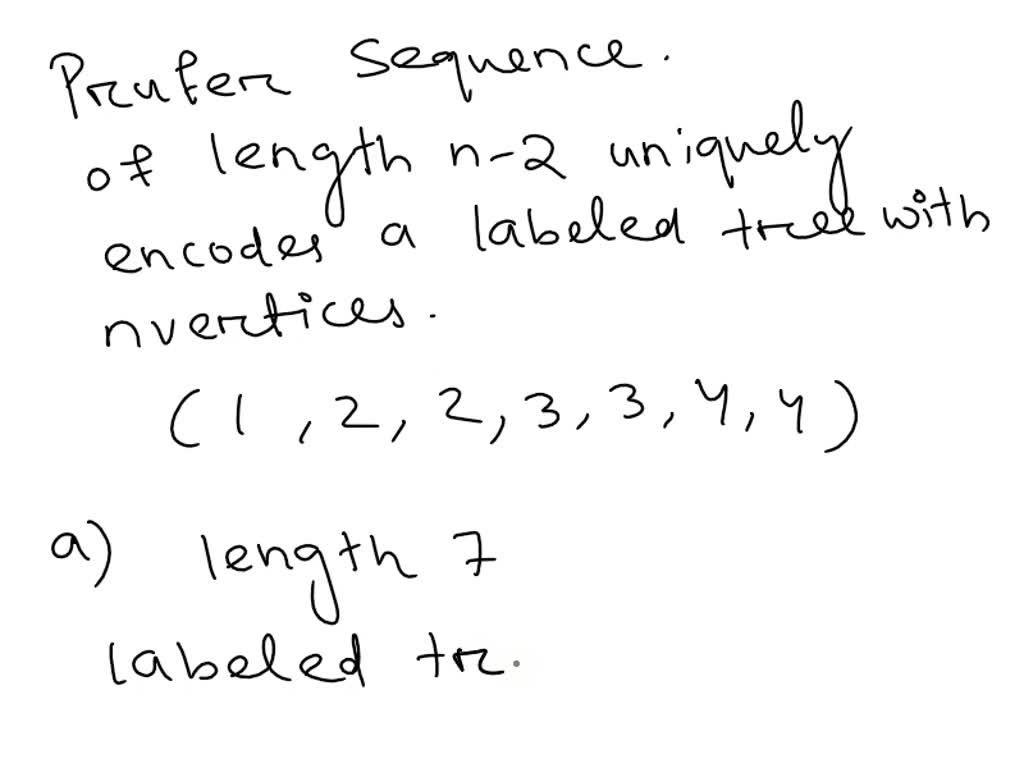 Prufer sequence.
of length n-2 uniquely
encodes a labeled tree with
nvertices.
(1, 2, 2, 3, 3, 4, 4)
a) length 7
labeled tr